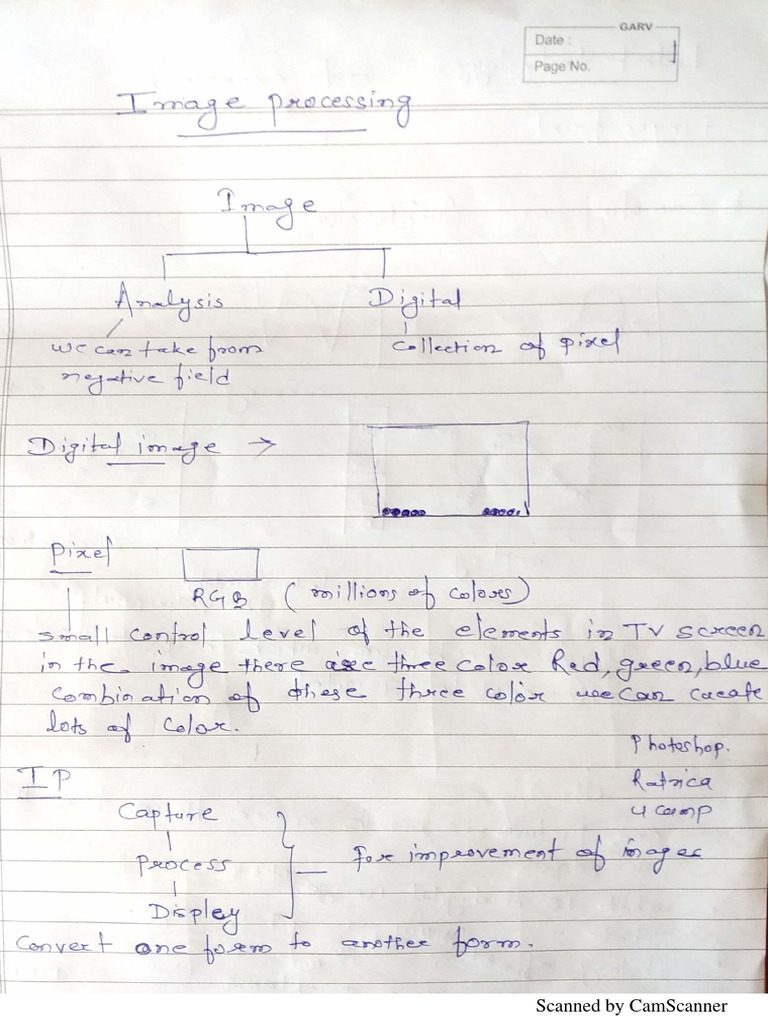 GARV
Date :
Page No. 1
Image processing
Image
Analysis Digital
we can take from collection of pixel
negative field
Digital image →
Pixel
RGB (millions of colores)
small control level of the elements in TV screen
in the image there are three color Red, green, blue
combination of these three color we can create
lots of color.
Photoshop.
IP Ratrica
Capture U camp
process for improvement of images
Display
Convert one form to another form.
Scanned by CamScanner